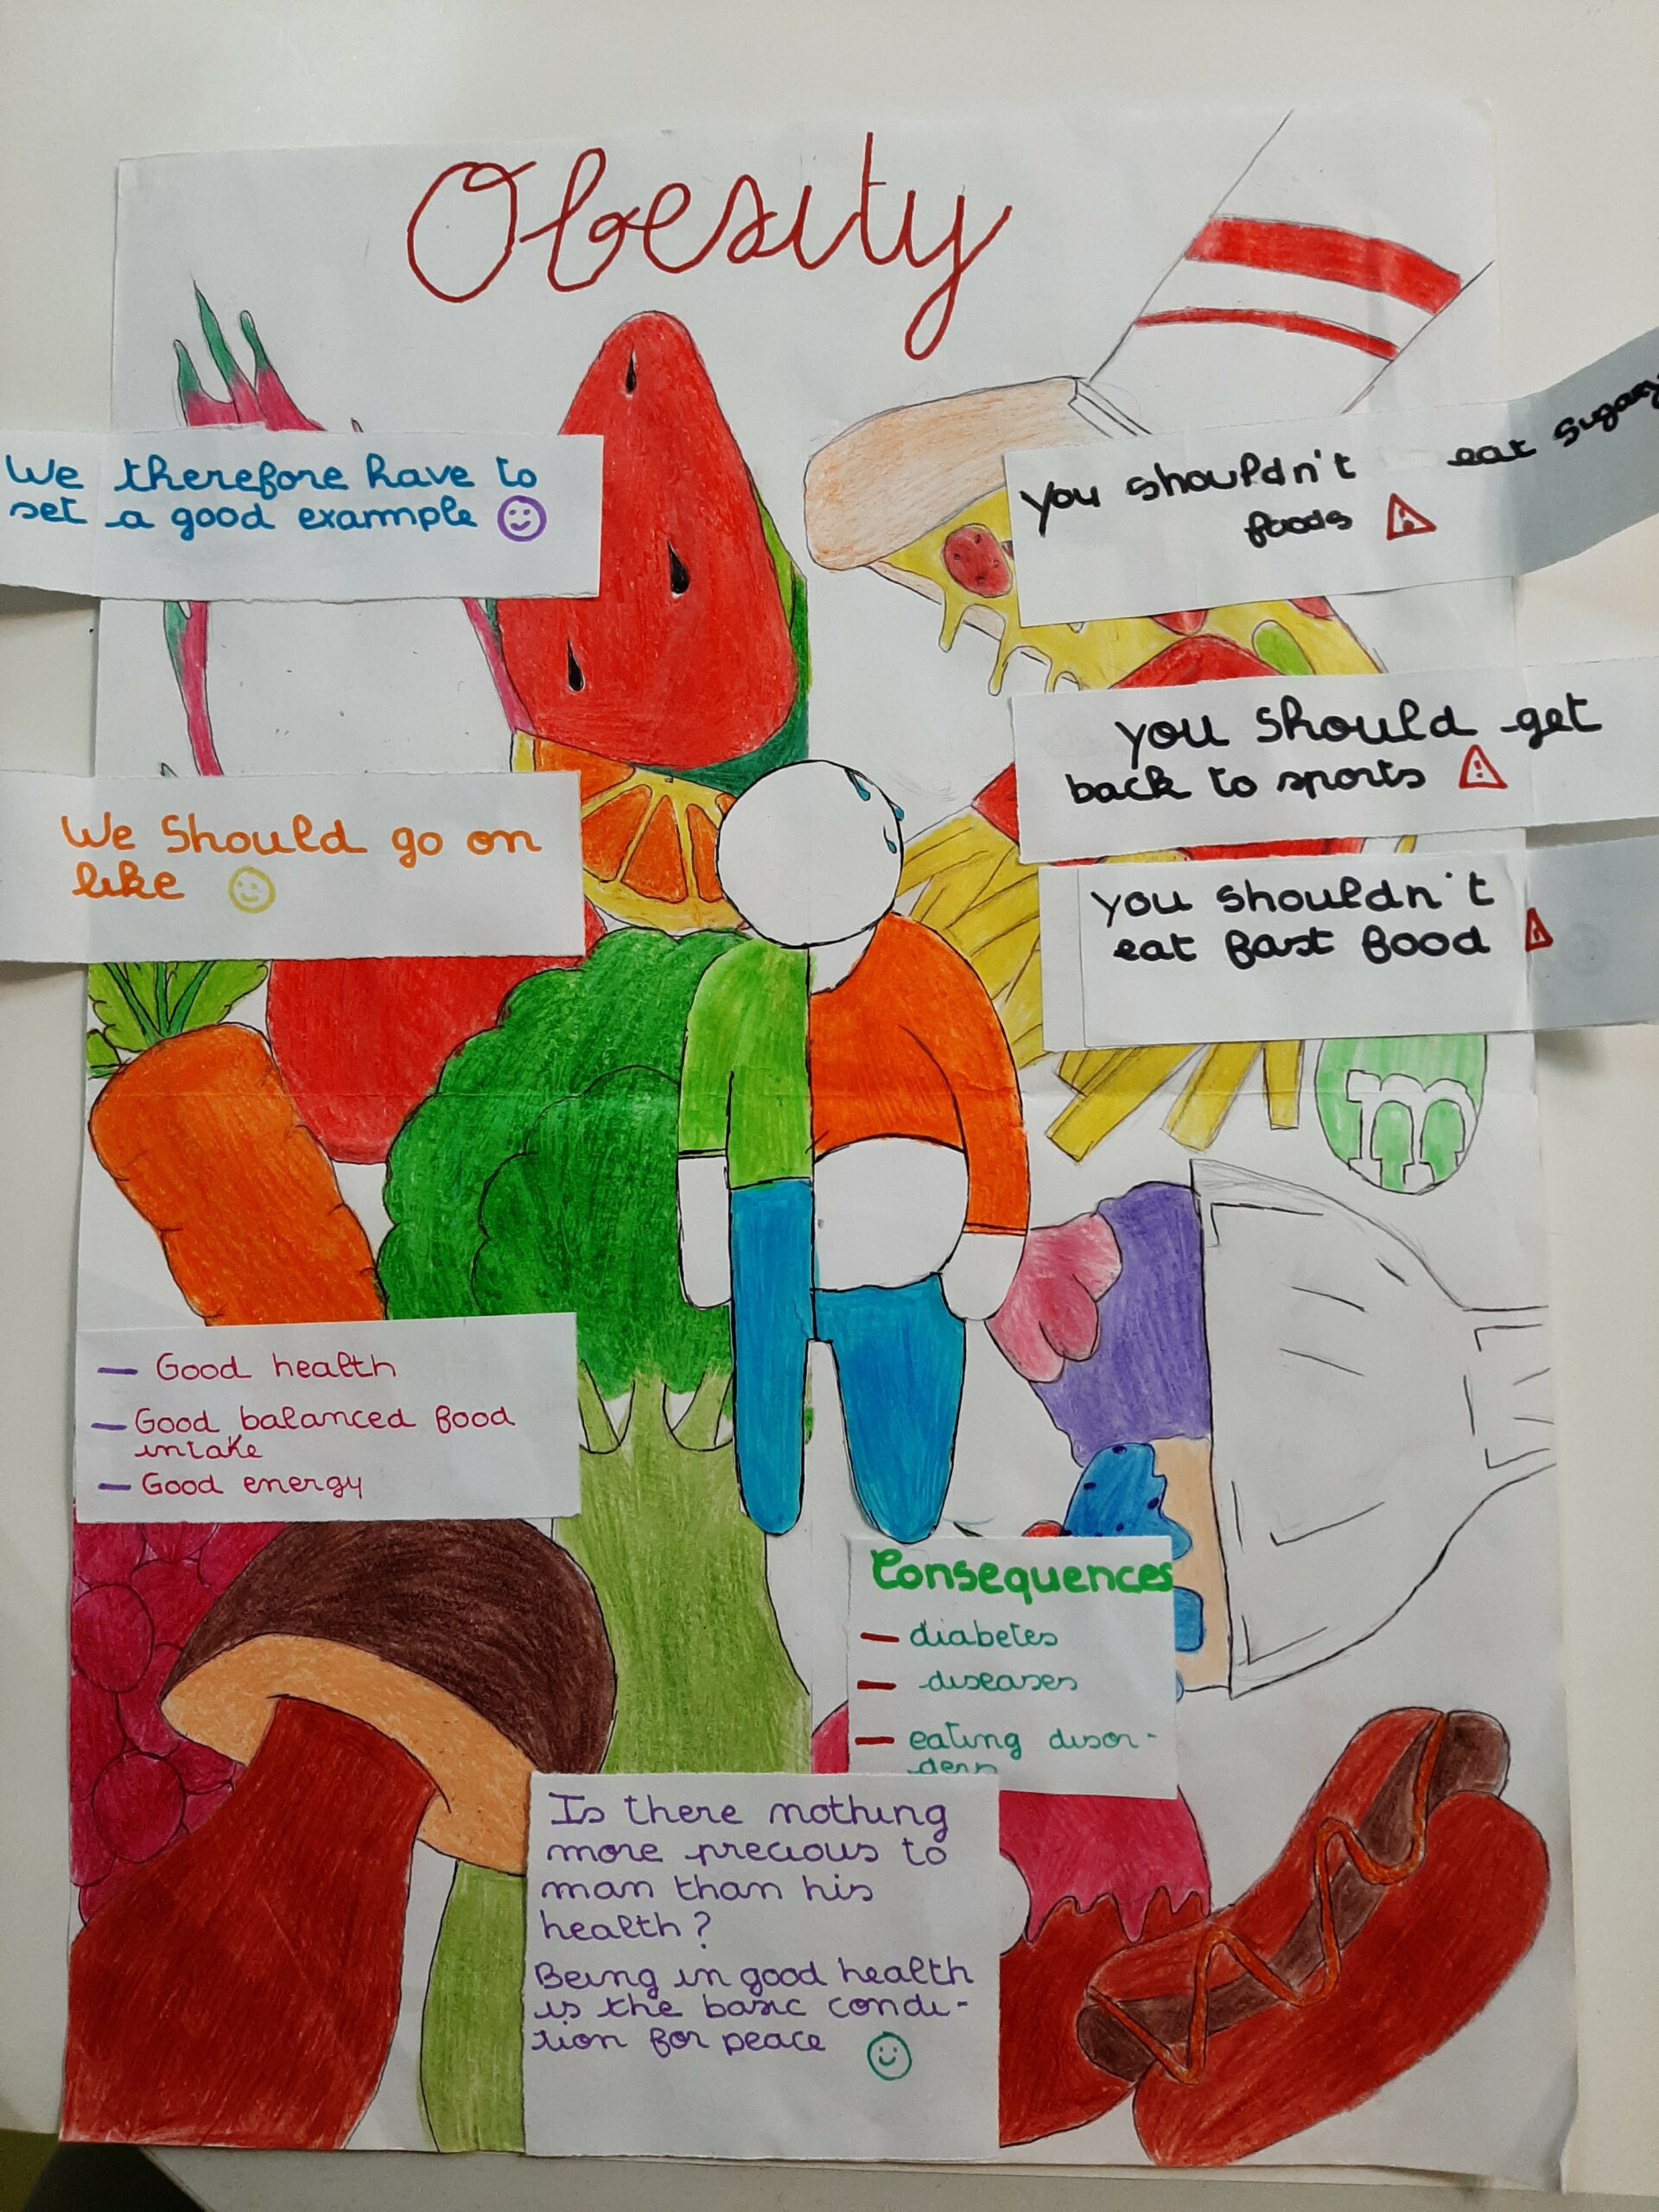 Obesity
We therefore have to
set a good example
We should go on
like
You shouldn't eat sugary
foods
you should get
back to sports
you shouldn't
eat fast food
m
— Good health
— Good balanced food
intake
— Good energy
Consequences
— diabetes
— diseases
— eating disor-
ders
Is there nothing
more precious to
man than his
health?
Being in good health
is the basic condi-
tion for peace